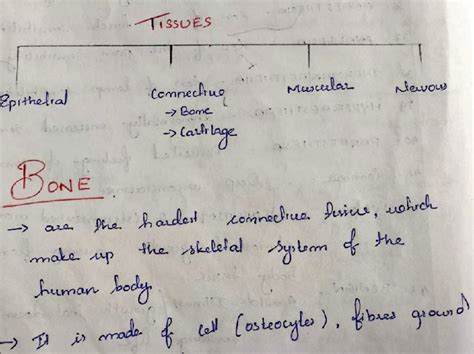 TISSUES
Epithelial Connective Muscular Nervous
→ Bone
→ Cartilage
BONE
→ are the hardest connective tissue, which
make up the skeletal system of the
human body.
→ It is made of cell (osteocytes), fibres ground